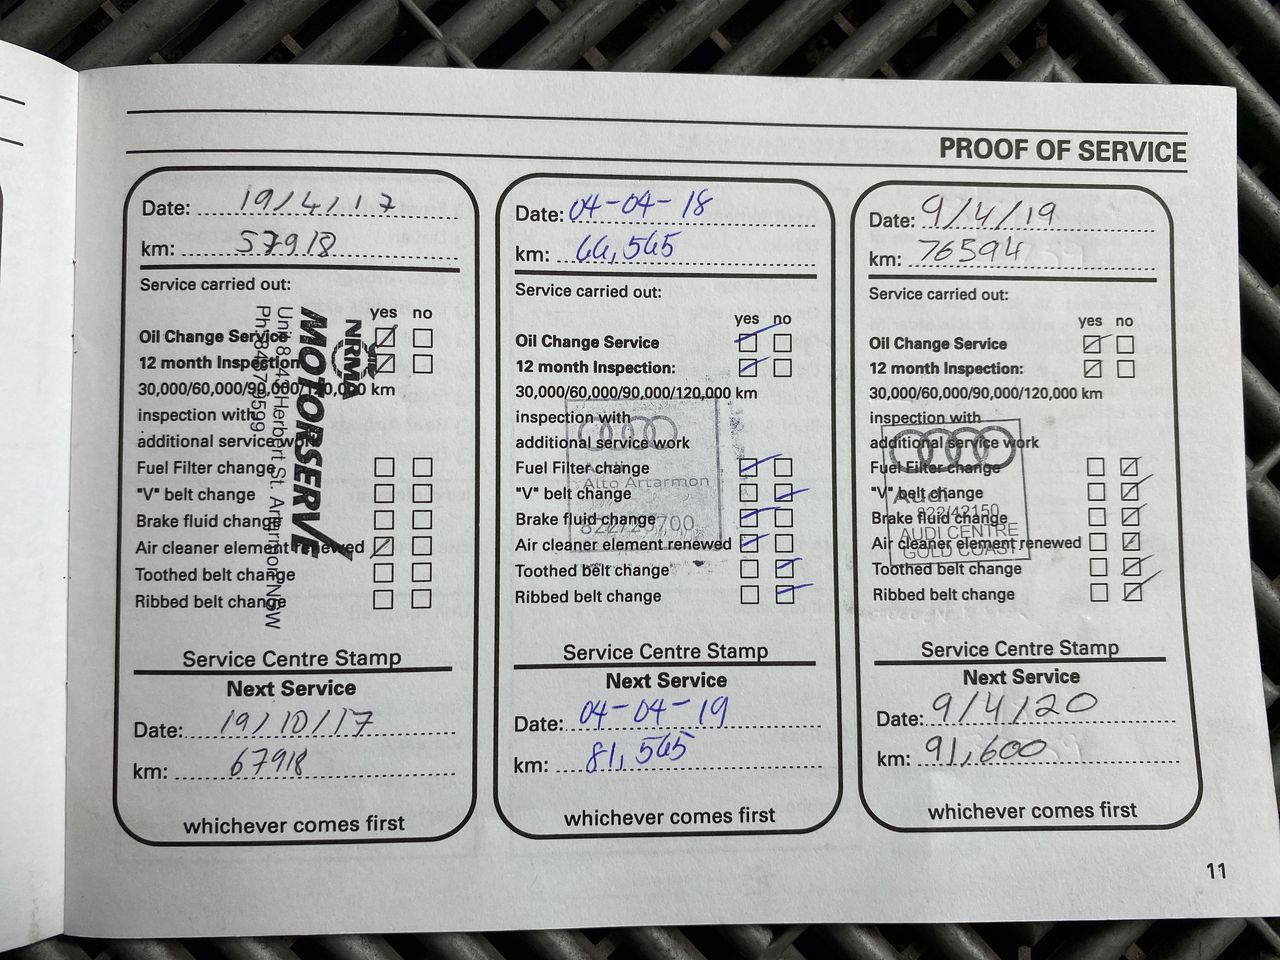 PROOF OF SERVICE
Date: 19/4/17
km: 57918
Service carried out:
yes no
Oil Change Service
12 month Inspection
30,000/60,000/90,000/120,000 km
inspection with
additional service work
Fuel Filter change
"V" belt change
Brake fluid change
Air cleaner element renewed
Toothed belt change
Ribbed belt change
NRMA
MOTORSERVE
Herbert St. Artarmon NSW
Service Centre Stamp
Next Service
Date: 19/10/17
km: 67918
whichever comes first
Date: 04-04-18
km: 66,565
Service carried out:
yes no
Oil Change Service
12 month Inspection:
30,000/60,000/90,000/120,000 km
inspection with
additional service work
Fuel Filter change
"V" belt change
Brake fluid change
Air cleaner element renewed
Toothed belt change
Ribbed belt change
Audi
Alto Artarmon
Service Centre Stamp
Next Service
Date: 04-04-19
km: 81,565
whichever comes first
Date: 9/4/19
km: 76594
Service carried out:
yes no
Oil Change Service
12 month Inspection:
30,000/60,000/90,000/120,000 km
inspection with
additional service work
Fuel Filter change
"V" belt change
Brake fluid change
Air cleaner element renewed
Toothed belt change
Ribbed belt change
Audi
822/42150
AUDI CENTRE
GOLD COAST
Service Centre Stamp
Next Service
Date: 9/4/20
km: 91,600
whichever comes first
11